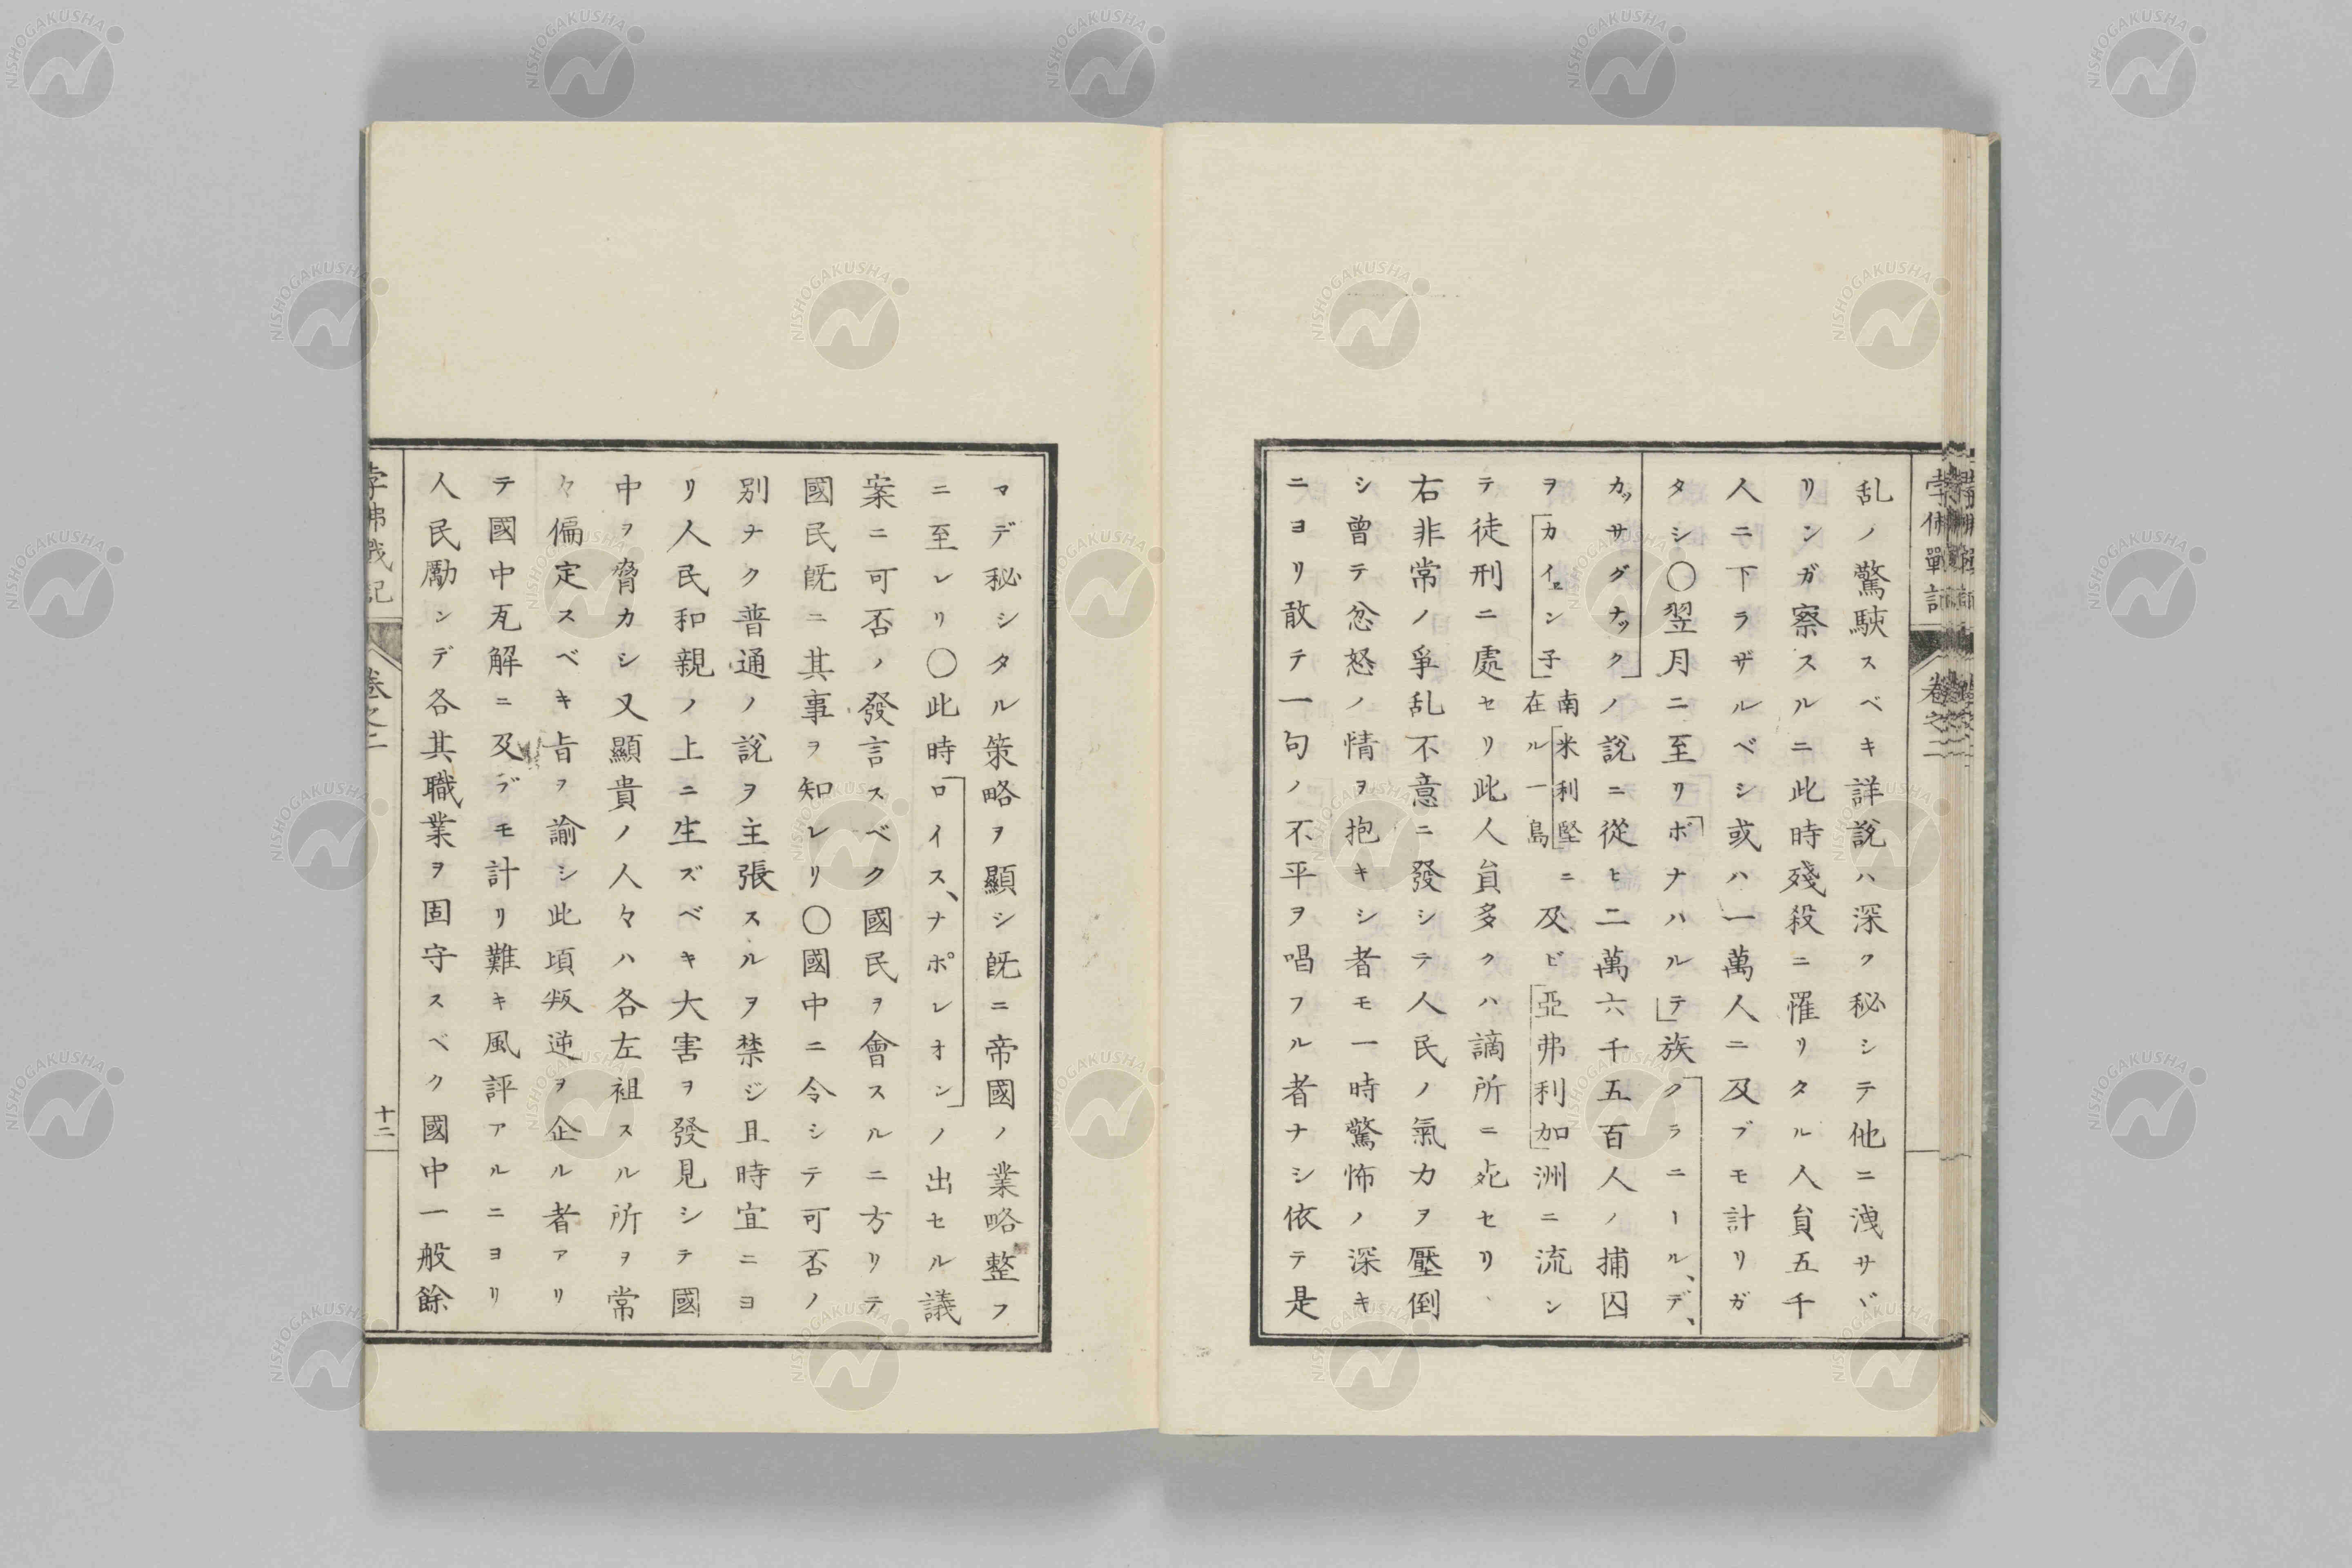 乱ノ驚駭スベキ詳說ハ深ク秘シテ他ニ洩サヾ
リンガ察スルニ此時殘殺ニ罹リタル人貟五千
人ニ下ラザルベシ或ハ一萬人ニ及ブモ計リガ
タシ〇翌月ニ至リボナハルテ族クラニール、デ、
カッサグナックノ說ニ從ヒ二萬六千五百人ノ捕囚
ヲカイヱン子南米利堅在ル一島ニ及ビ亞弗利加洲ニ流ン
テ徒刑ニ處セリ此人貟多クハ謫所ニ死セリ
右非常ノ爭乱不意ニ發シテ人民ノ氣力ヲ壓倒
シ曾テ忿怒ノ情ヲ抱キシ者モ一時驚怖ノ深キ
ニヨリ敢テ一句ノ不平ヲ唱フル者ナシ依テ是
マデ秘シタル策略ヲ顯シ旣ニ帝國ノ業略整フ
ニ至レリ〇此時ロイス、ナポレオンノ出セル議
案ニ可否ノ發言スベク國民ヲ會スルニ方リテ
國民旣ニ其事ヲ知レリ〇國中ニ令シテ可否ノ
別ナク普通ノ說ヲ主張スルヲ禁ジ且時宜ニヨ
リ人民和親ノ上ニ生ズベキ大害ヲ發見シテ國
中ヲ脅カシ又顯貴ノ人々ハ各左袒スル所ヲ常
々偏定スベキ旨ヲ諭シ此頃叛逆ヲ企ル者アリ
テ國中瓦解ニ及デモ計リ難キ風評アルニヨリ
人民勵ンデ各其職業ヲ固守スベク國中一般餘
孛佛戰記 卷之二 十二
NISHOGAKUSHA